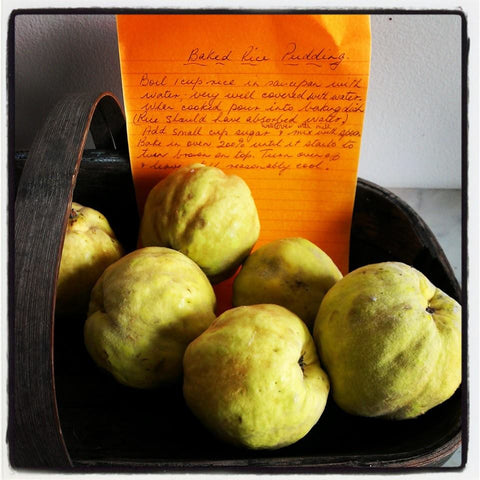 Baked Rice Pudding.
Boil 1 cup rice in saucepan with
water, very well covered with water.
When cooked pour into baking dish
(Rice should have absorbed water)
cover with milk
Add small cup sugar & mix with spoon
Bake in oven 200° until it starts to
turn brown on top. Turn oven off
& leave till reasonably cool.